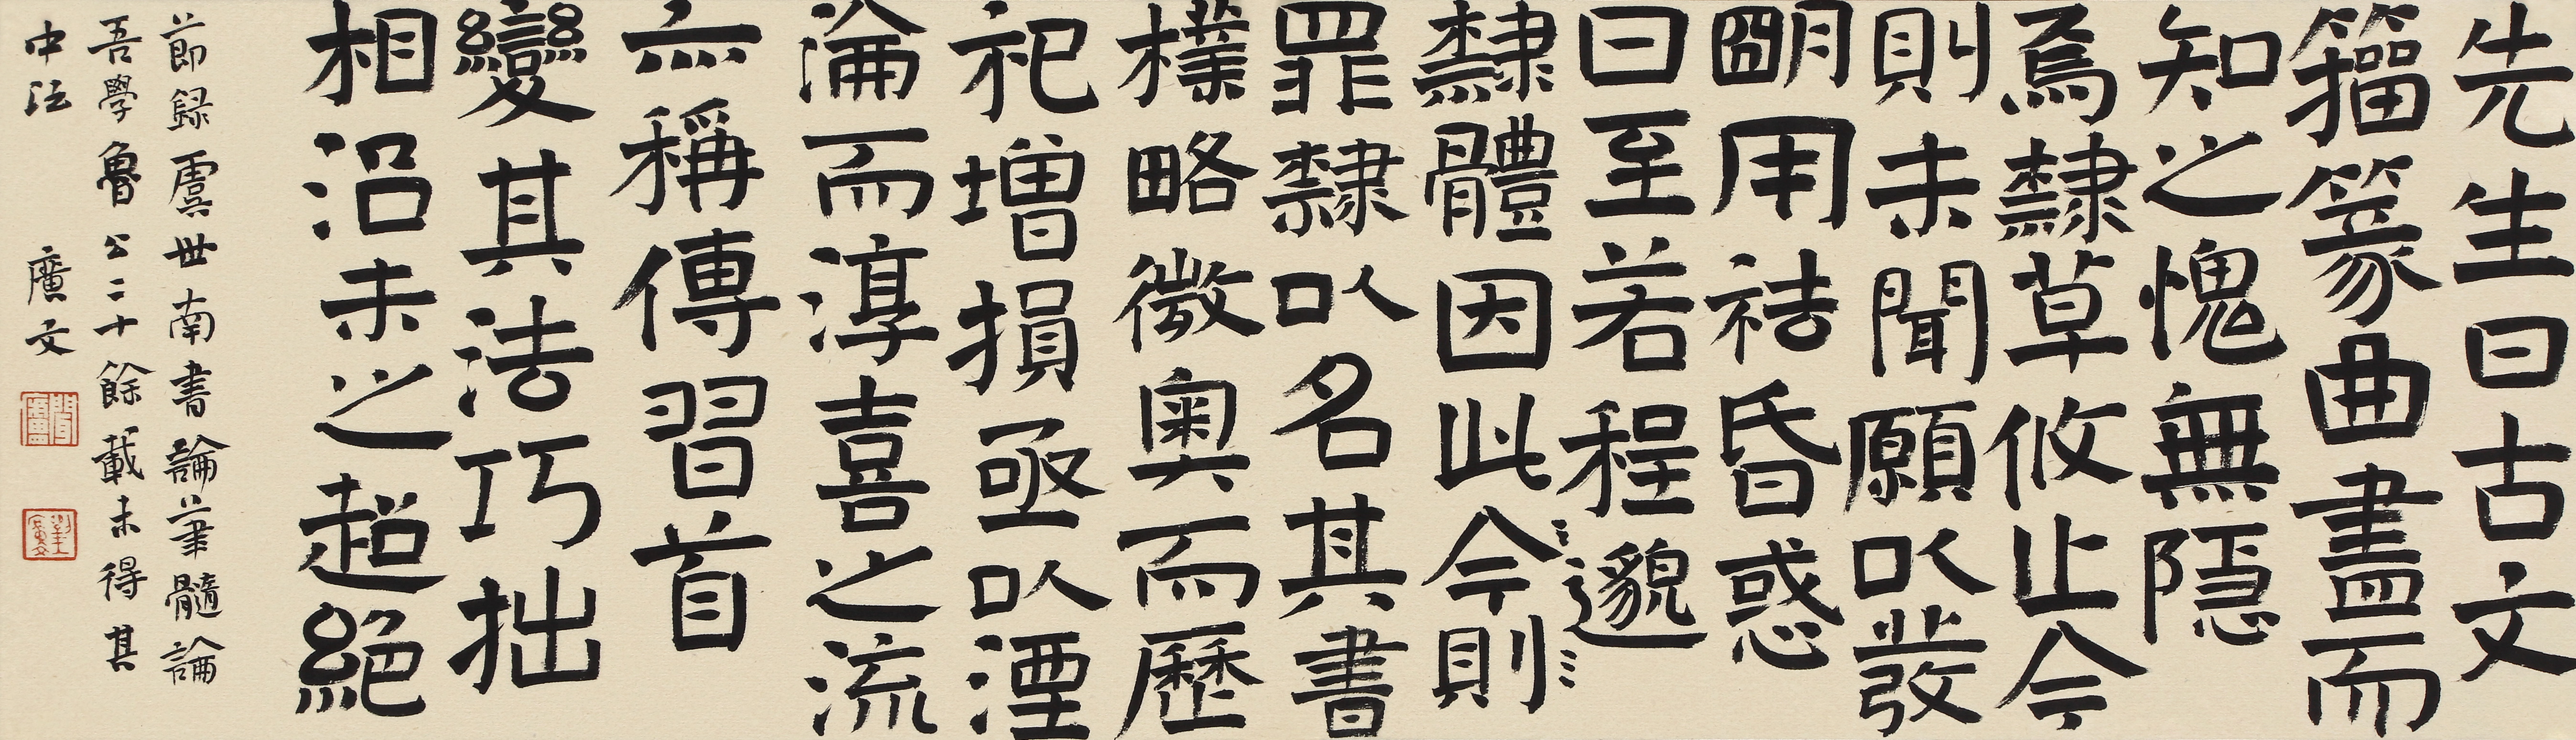 先生曰古文
籀篆曲盡而
知之愧無隱
焉隸草攸止今
則未聞願以發
朙用祛昏惑
曰至若程邈
隸體因此今則
罪隸以名其書
樸略微奧而歷
祀增損亟以湮
淪而淳喜之流
亦稱傳習首
變其法巧拙
相沿未之超絕
節録虞世南書論筆髓論
吾學魯公二十餘載未得其
中法 廣文